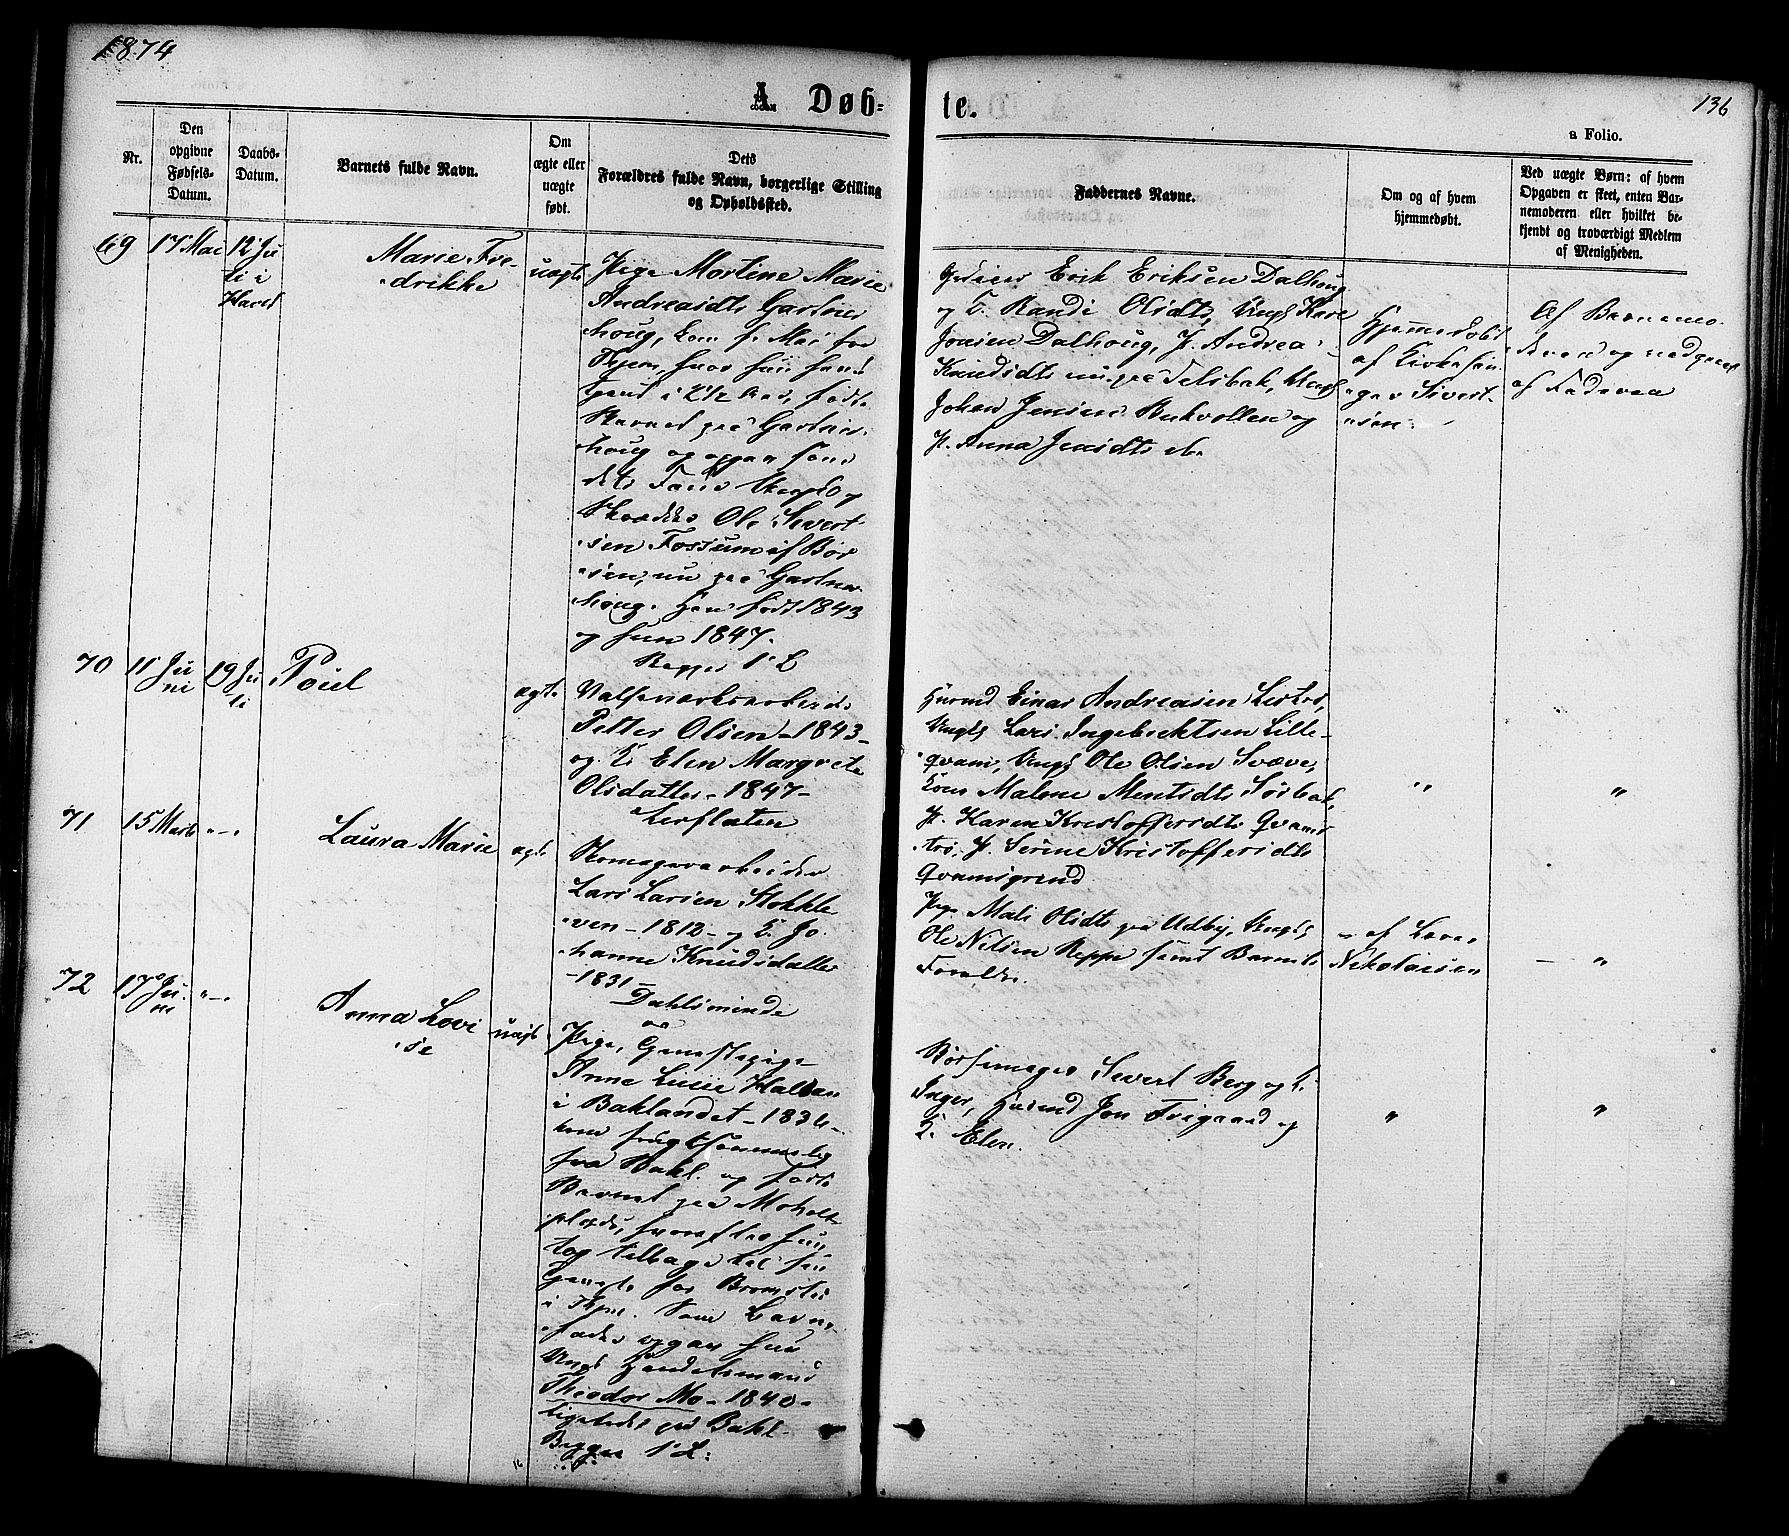 1874
136
A Døb-
te.
a Folio.
Nr.
Den
opgivne
Fødsels-
Datum.
Daabs-
Datum.
Barnets fulde Navn.
Om
ægte eller
uægte
født.
Dets
Forældres fulde Navn, borgerlige Stilling
og Opholdssted.
Faddernes Navne.
Om og af hvem
hjemmedøbt.
Ved uægte Børn: af hvem
Opgaven er skeet, enten Bar-
nemoderen eller hvilket be-
kjendt og troværdigt Medlem
af Menigheden.
69
17 Mai
12 Ju
li i
Hared
Marie Fre-
drikke
uægte
Pige Mortine Marie
Andreasdtr Gartner
houg, kom fr. Mai fra
Thjem, hvor hun havd
tjent i 2 1/2 Aar, fødte
Barnet paa Gartner-
houg og opgav som
dets Fader Ungkl og
Skrædder Ole Sivert
sen Fossum af Bør
sen, nu paa Gartner
houg. Han født 1843
og hun 1847.
Begges 1' L
Erik Eriksen Dalhoug
og K. Randi Olsdtr, Ungk Kare
Jonsen Dalhoug, P. Andrea
Knudsdtr nu paa Telsbak, Ungk
Johan Jensen Bukvollen og
P. Anna Jensdtr ib.
Hjemmedøbt
af Kirkesan
ger Sivert-
sen
Af Barnemo-
deren og vedgaaet
af Faderen
70
11 Ju
ni
19 Ju
li
Poul
ægte
Valseværksarbeider
Petter Olsen - 1843 -
og K. Elen Margrete
Olsdatter - 1847 -
Lerfloten
Husmd Einar Andreasen
Ungk Lars Ingebrektsen Lille-
qvam, Ungk Ole Olsen Svæve,
Kone Malene Mentsdtr Sørbak,
P. Karen Kristoffersdtr Qvams
trø, P. Serine Kristoffersdtr
Qvamsgrind
"
"
71
15 Marts
" - "
Laura Marie
ægte
Lars Larsen Stokkle
ven - 1812 - og K. Jo
hanne Knudsdatter
- 1831 -
Dahlsminde
Pige Mali Olsdtr paa Udby, Ungk
Ole Nilsen Reppe samt Barnets
Forældre.
- af Lover
Nikolaisen
— "
72
17 Ju
ni
" - "
Anna Lovi
se
uægte
Pige, Tjenestepige
Anne Lusie Haldan
i Baklandet - 1834 -
kom frugtsommelig
fra Bakl. og fødte
Barnet paa Moholt
plads, hvorefter hun
tog tilbage til sin
Tjeneste for Bromstad
i Thjm. Som Barne
fader opgav hun
Ungk Handelsmand
Theodor Mo - 1840 -
ligeledes paa Bakl.
Begges 1' L:
Børsemager Sivert Berg og K.
Inger, Husmd Jon Trigaard og
K. Elen.
"
"